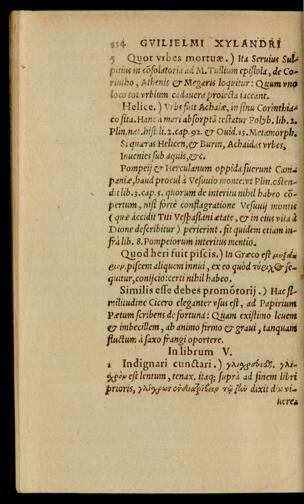 954 GVILIELMI XYLANDRI
5 Quot vrbes mortuæ.) Ita Seruius Sul-
pitius in cõsolatoria ad M. Tullium epistola, de Co-
rintho, Athenis & Megaris loquitur: Quum vno
loco tot vrbium cadauera proiecta iaceant.
Helice.) Vrbs fuit Achaiæ, in sinu Corinthia-
co sita. Hanc a mari absorptã testatur Polyb. lib. 2.
Plin. nat. hist. li. 2. cap. 92. & Ouid. 15. Metamorph.
Si quæras Helicen, & Burin, Achaidas vrbes,
Inuenies sub aquis, &c.
Pompeij & Herculanum oppida fuerunt Cam-
paniæ, haud procul à Vesuuio monte, vt Plin. osten-
dit lib. 3. cap. 5. quorum de interitu nihil habeo cõ-
pertum, nisi fortè conflagratione Vesuuij montis
(quæ accidit Titi Vespasiani ætate, & in eius vita à
Dione describitur) perierint. fit quidem etiam in-
frà lib. 8. Pompeiorum interius mentio.
Quod heri fuit piscis.) In Græco est
piscem aliquem innui, ex eo quòd & se-
quitur, conijcio: certi nihil habeo.
Similis esse debes promõtorij.) Hac si-
militudine Cicero eleganter vsus est, ad Papirium
Pætum scribens de fortuna: Quam existimo leuem
& imbecillem, ab animo firmo & graui, tanquam
fluctum à saxo frangi oportere.
In librum V.
2 Indignari cunctari.)
est lentum, tenax. itaq; suprà ad finem libri
prioris, dixit diu vi-
uere